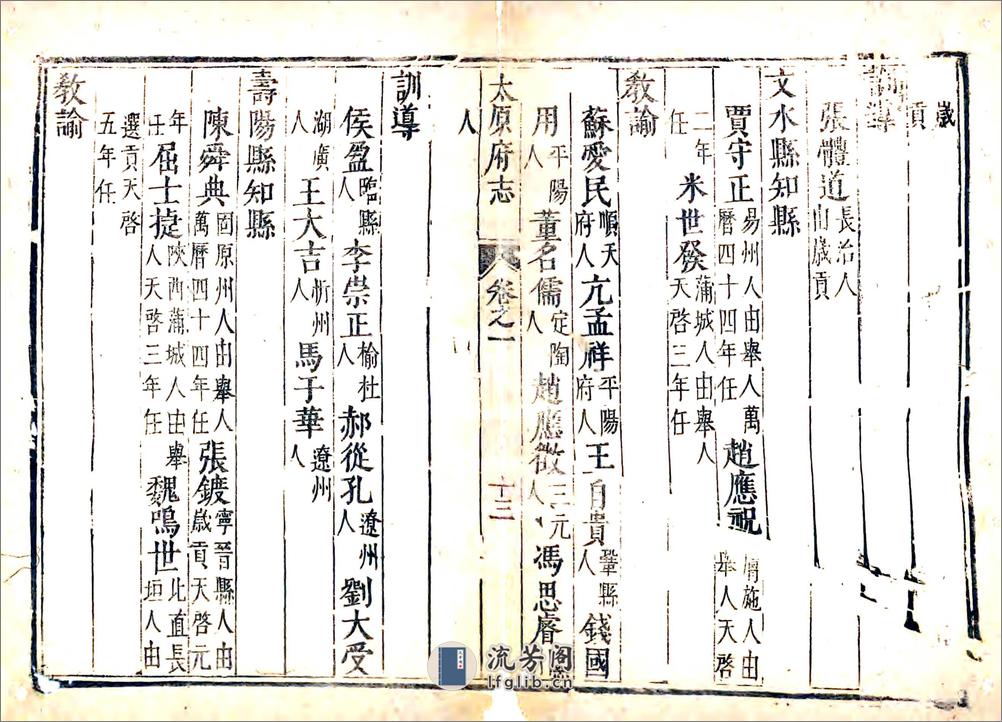 歲貢
訓導
張體道長治人由歲貢
文水縣知縣
賈守正易州人由舉人萬曆四十四年任 趙應祝膚施人由舉人天啓
二年任 米世發蒲城人由舉人天啓三年任
教諭
蘇愛民順天府人 亢孟祥平陽府人 王自貴鞏縣人 錢國
用平陽人 董名儒定陶人 趙應徵三元人 馮思睿
太原府志 卷之一 十三
人
訓導
侯盈臨縣人 李崇正榆社人 郝從孔遼州人 劉大受
湖廣人 王大吉忻州人 馬于華遼州人
壽陽縣知縣
陳舜典固原州人由舉人萬曆四十四年任 張鍍寧晉縣人由歲貢天啓元
年任 屈士㨗陝西蒲城人由舉人天啓三年任 魏鳴世北直長垣人由
選貢天啓五年任
教諭
流芳阁
lfglib.cn